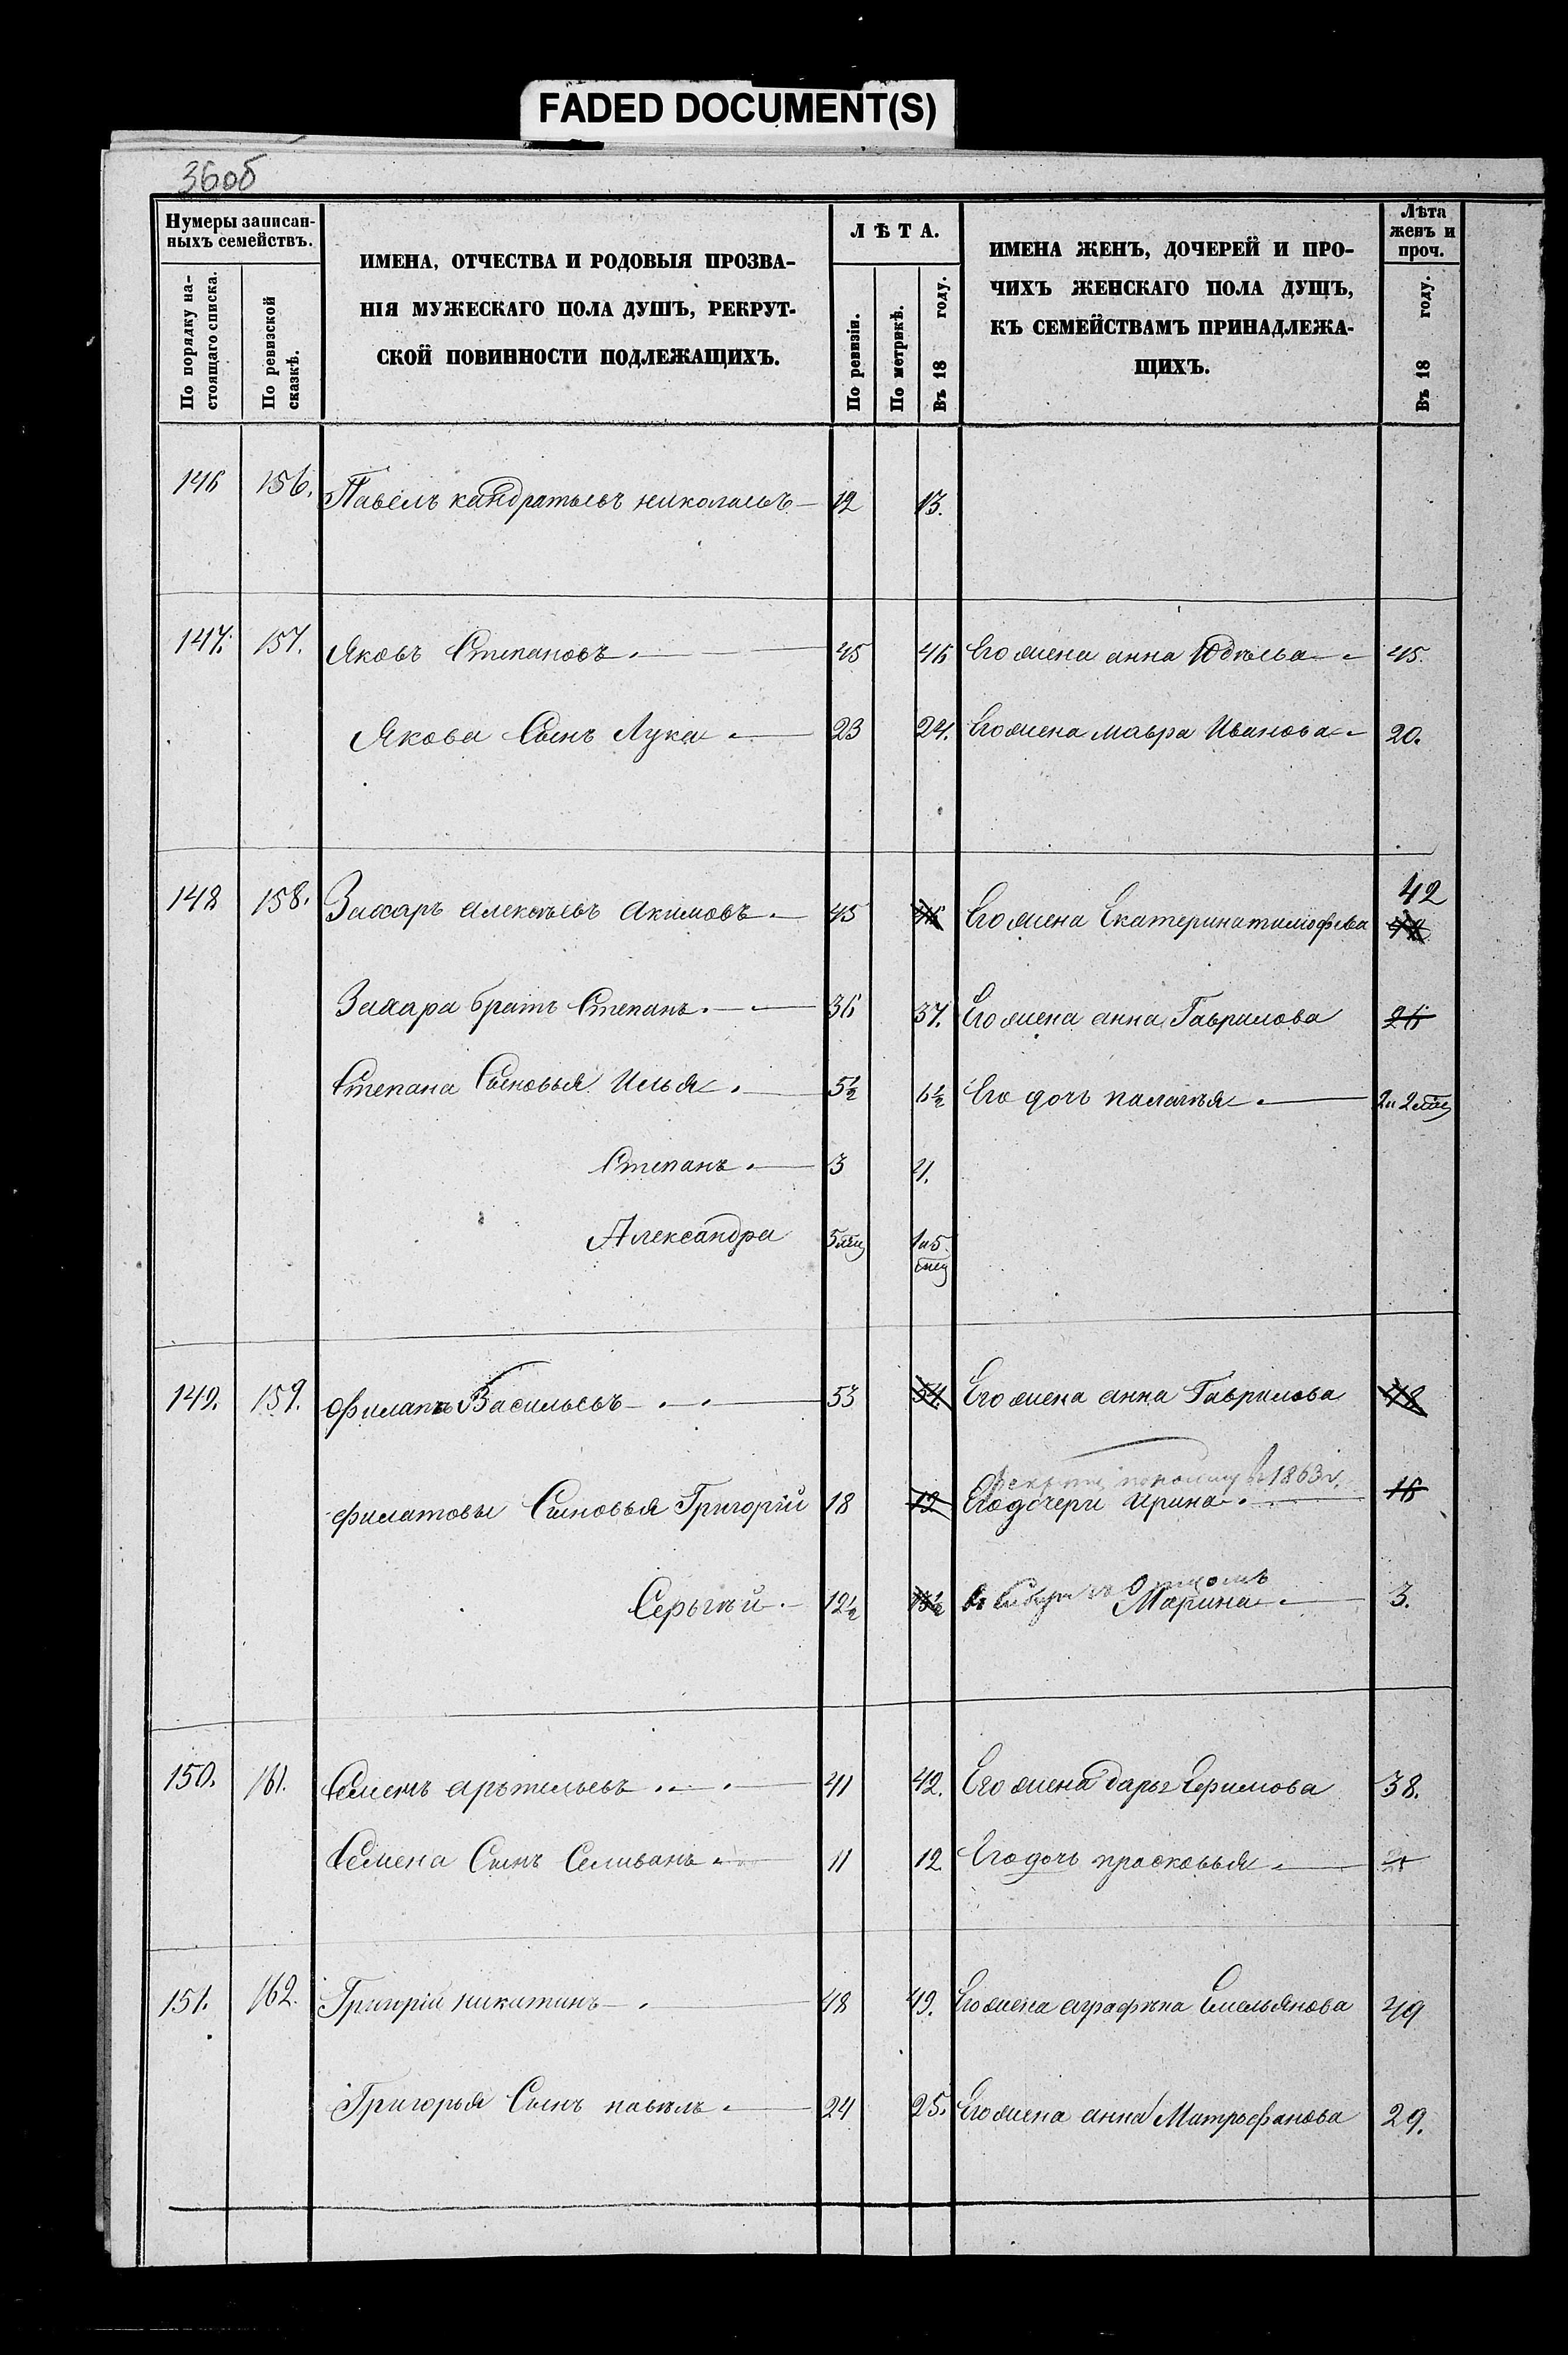 FADED DOCUMENT(S)
36об
Нумеры записан-
ныхъ семействъ.
По порядку на-
стоящаго списка.
По ревизской
сказкѣ.
ИМЕНА, ОТЧЕСТВА И РОДОВЫЯ ПРОЗВА-
НІЯ МУЖЕСКАГО ПОЛА ДУШЪ, РЕКРУТ-
СКОЙ ПОВИННОСТИ ПОДЛЕЖАЩИХЪ.
ЛѢТА.
По ревизіи.
По метрикѣ.
Въ 18 году.
ИМЕНА ЖЕНЪ, ДОЧЕРЕЙ И ПРО-
ЧИХЪ ЖЕНСКАГО ПОЛА ДУШЪ,
КЪ СЕМЕЙСТВАМЪ ПРИНАДЛЕЖА-
ЩИХЪ.
Лѣта
женъ и
проч.
Въ 18 году.
146 156. Павелъ кандратьевъ николаевъ 12 13.
147. 157. Яковъ Степановъ 45 46 Его жена анна 45.
Якова Сынъ Лука 23 24. Его жена мавра Иванова 20.
42
148 158. Захаръ алексѣевъ Акимовъ 45 46 Его жена Екатерина тимофева
Захара братъ Степанъ 36 37. Его жена анна Гаврилова 26
Степана Сыновья Илья 5½ 6½ Его дочь палагѣя 2 и 2 мѣц
Степанъ 3 4.
Александра 5 мѣц 1 и 5
мец
149. 159. Филатъ Васильевъ 53 54. Его жена анна Гаврилова 48
в 1863 г.
Филатовы Сыновья Григорій 18 19 Его дочери Ирина 16
в Сибири съ Отцомъ
Серьгѣй 12½ 13½ Марина 3.
150. 161. Семенъ арьтемьевъ 41 42. Его жена дарья Ефимова 38.
Семена Сынъ Селиванъ 11 12 Его дочь прасковья
151. 162. Григорій никитинъ 48 49. Его жена аграфѣна Емельянова 49
Григорья Сынъ павѣлъ 24 25. Его жена анна Митрофанова 29.